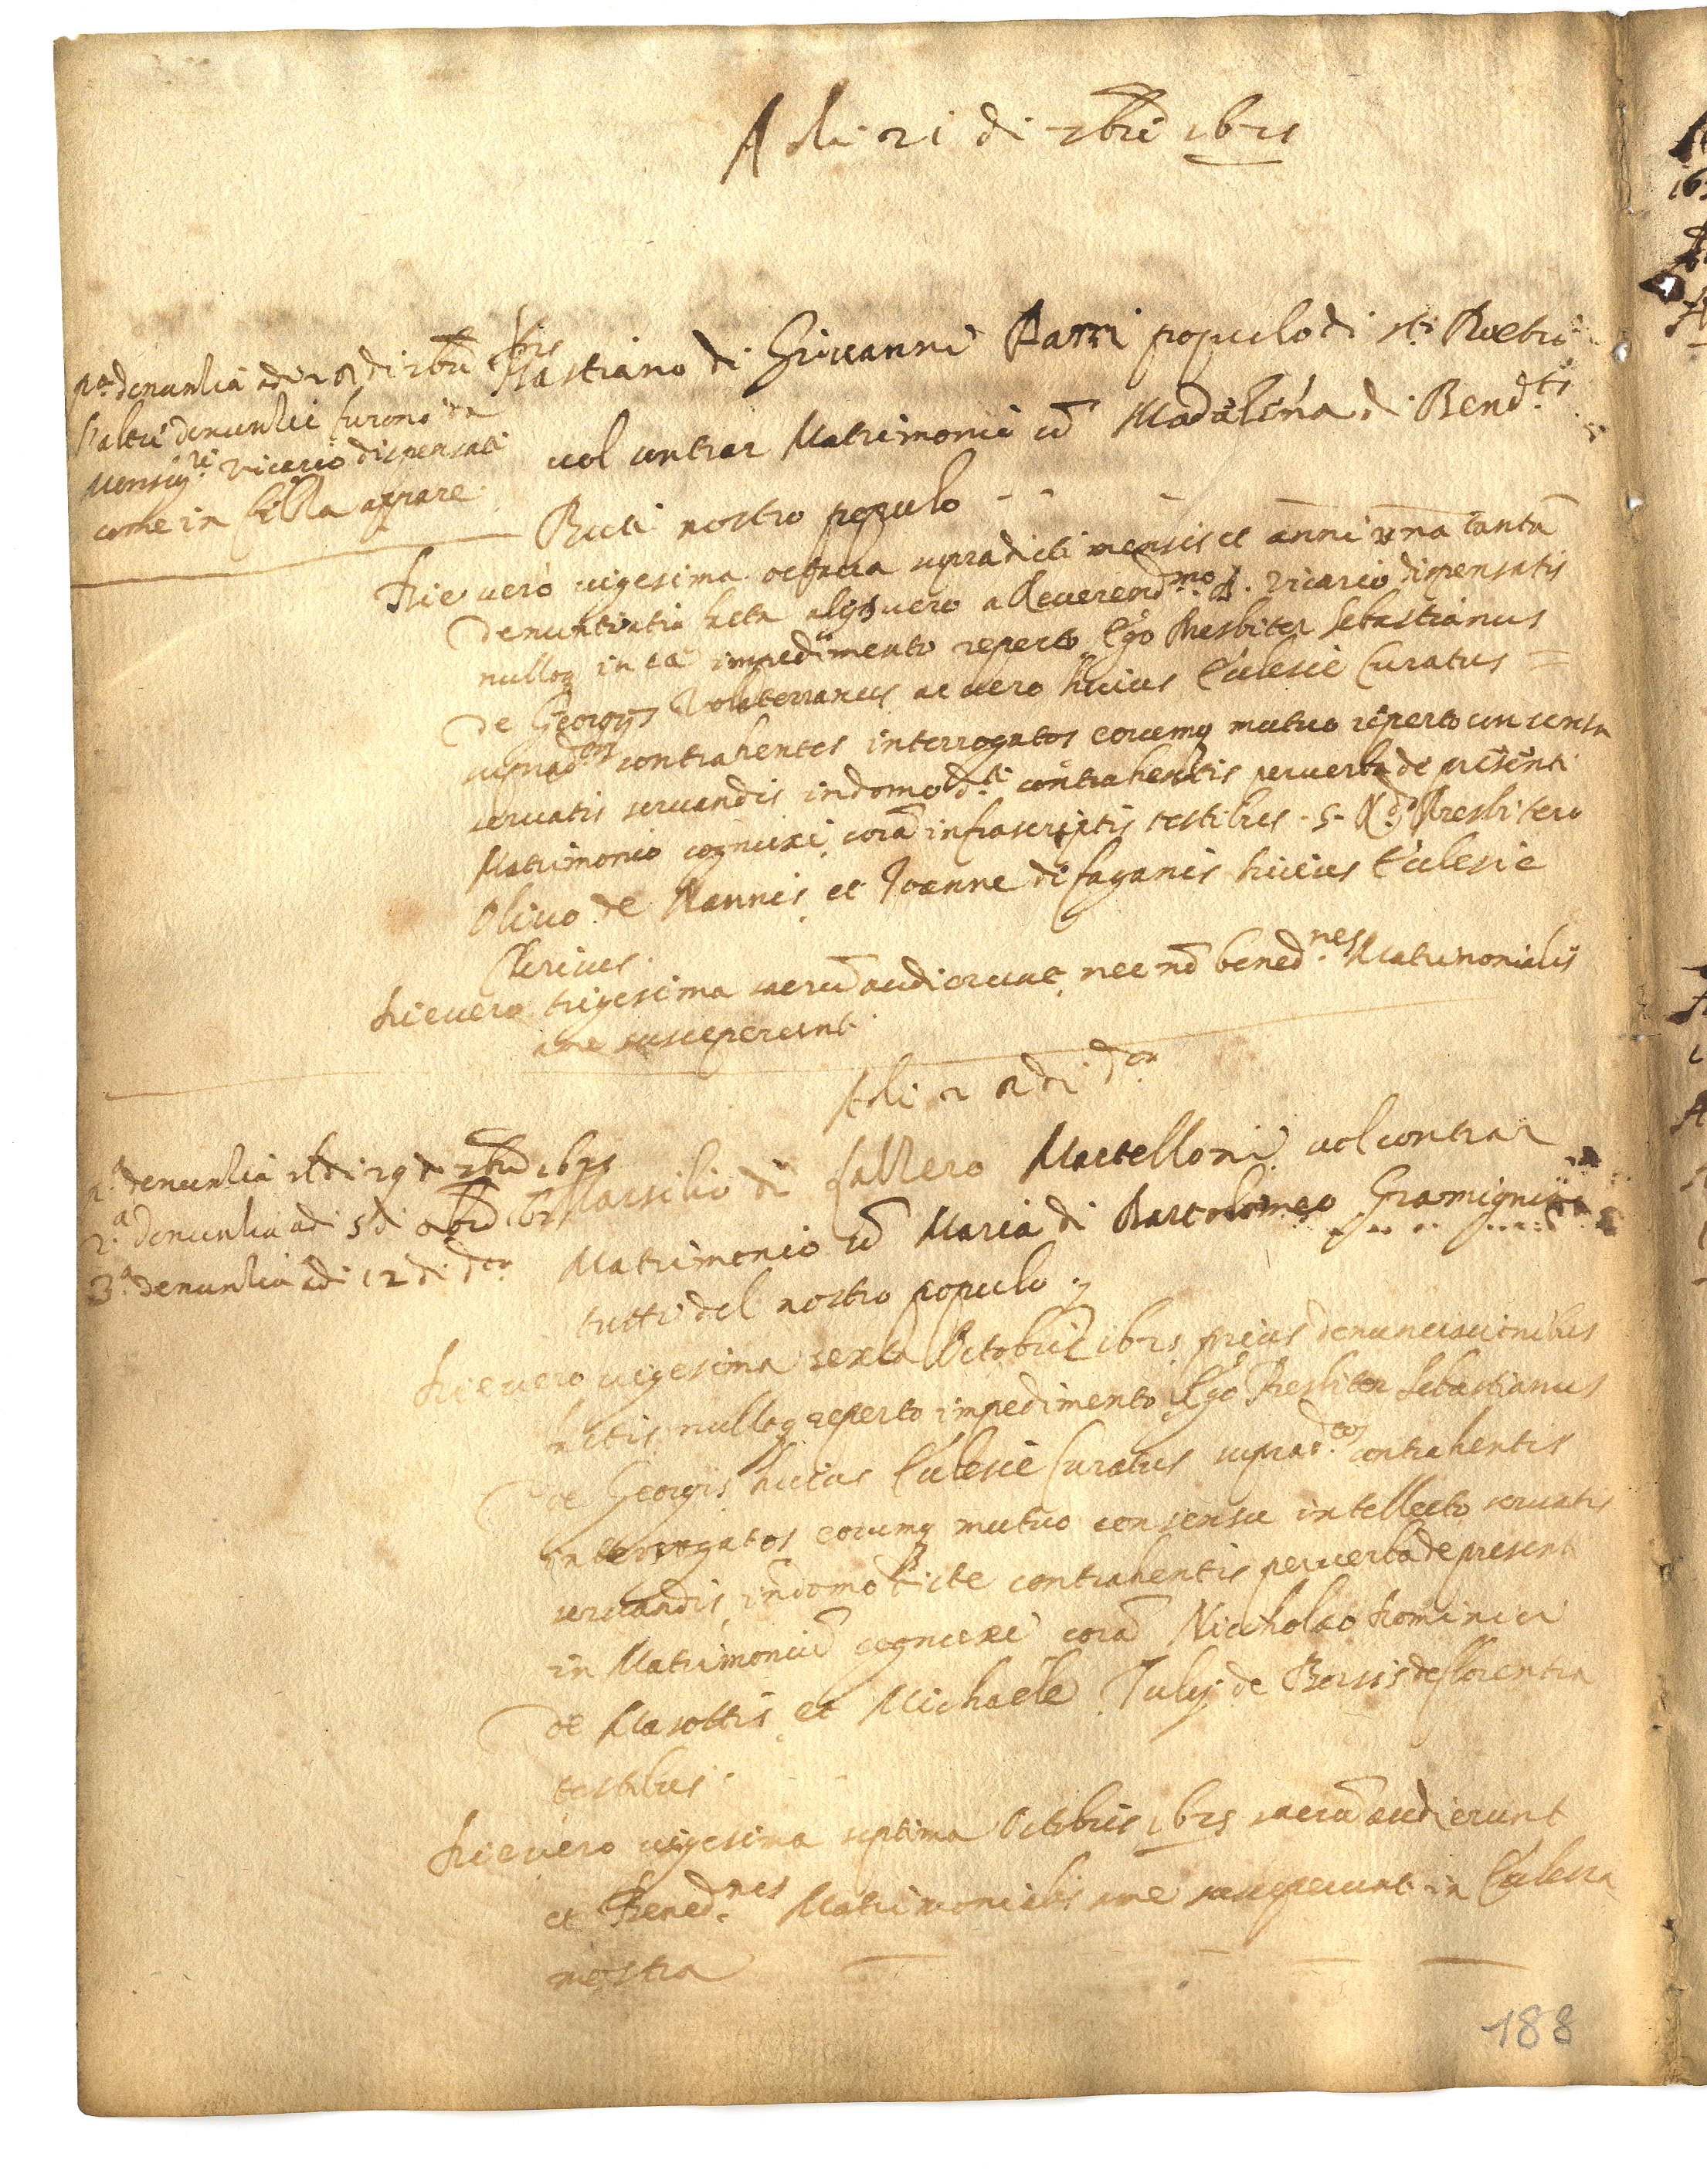 A di 21 di 7bre 1625
p.a denuntia adi 28 di 7bre 1625
l'altre denuntie furono da
Monsig.re Vicario dispensati
come in filza appare
Bastiano di Giovanni Parri populo di s.ti Pietro
vol contrar Matrimonio cō Madalena di Bened.to
Buti nostro populo
Die vero vigesima octava supradicti mensis et anni una tantū
denuntiatio facta alijs vero a Reverend.mo D. Vicario dispensatis
nulloq in ea impedimento reperto, Ego Presbiter Sebastianus
de Georgijs Volaterranus ac vero huius Eclesie Curatus
suprad.os contrahentes interrogatos eorumq mutuo reperto consensu
servatis servandis in domo d.ti contrahentis per verba de presenti
Matrimonio cogniuxi, corā infrascriptis testibus - s - R.do Presbitero
Olivo de Nannis, et Joanne de faganis huius Eclesie
Clericus.
Die vero trigesima sacrū audierunt, nec nō bened.nes Matrimonialis
a me susceperunt
Adi 28 di d.o
1.a denuntia adi 29 di 7bre 1625
2.a denuntia adi 5 di 8bre 1625
3.a denuntia adi 12 di d.o
Marsilio di Vallero Martelloni vol contrar
Matrimonio cō Maria di Bartolomeo Gramigni
tutti del nostro populo
Die vero vigesima sexta Octobris 1625 prius denunciacionibus
factis nulloq reperto impedimento, Ego Presbiter Sebastianus
de Georgis huius Eclesie Curatus suprad.tos contrahentis
interrogatos eorumq mutuo consensu intellecto servatis
servandis, in domo dicte contrahentis per verba de present
in Matrimoniū cogniuxi corā Nicholao Dominici
de Masottis, et Michaele Julij de Borsis de florentia
testibus.
Die vero vigesima septima Octobris 1625 sacrū audierunt
et Bened.nes Matrimonialis a me susceperunt in Eclesia
nostra
188